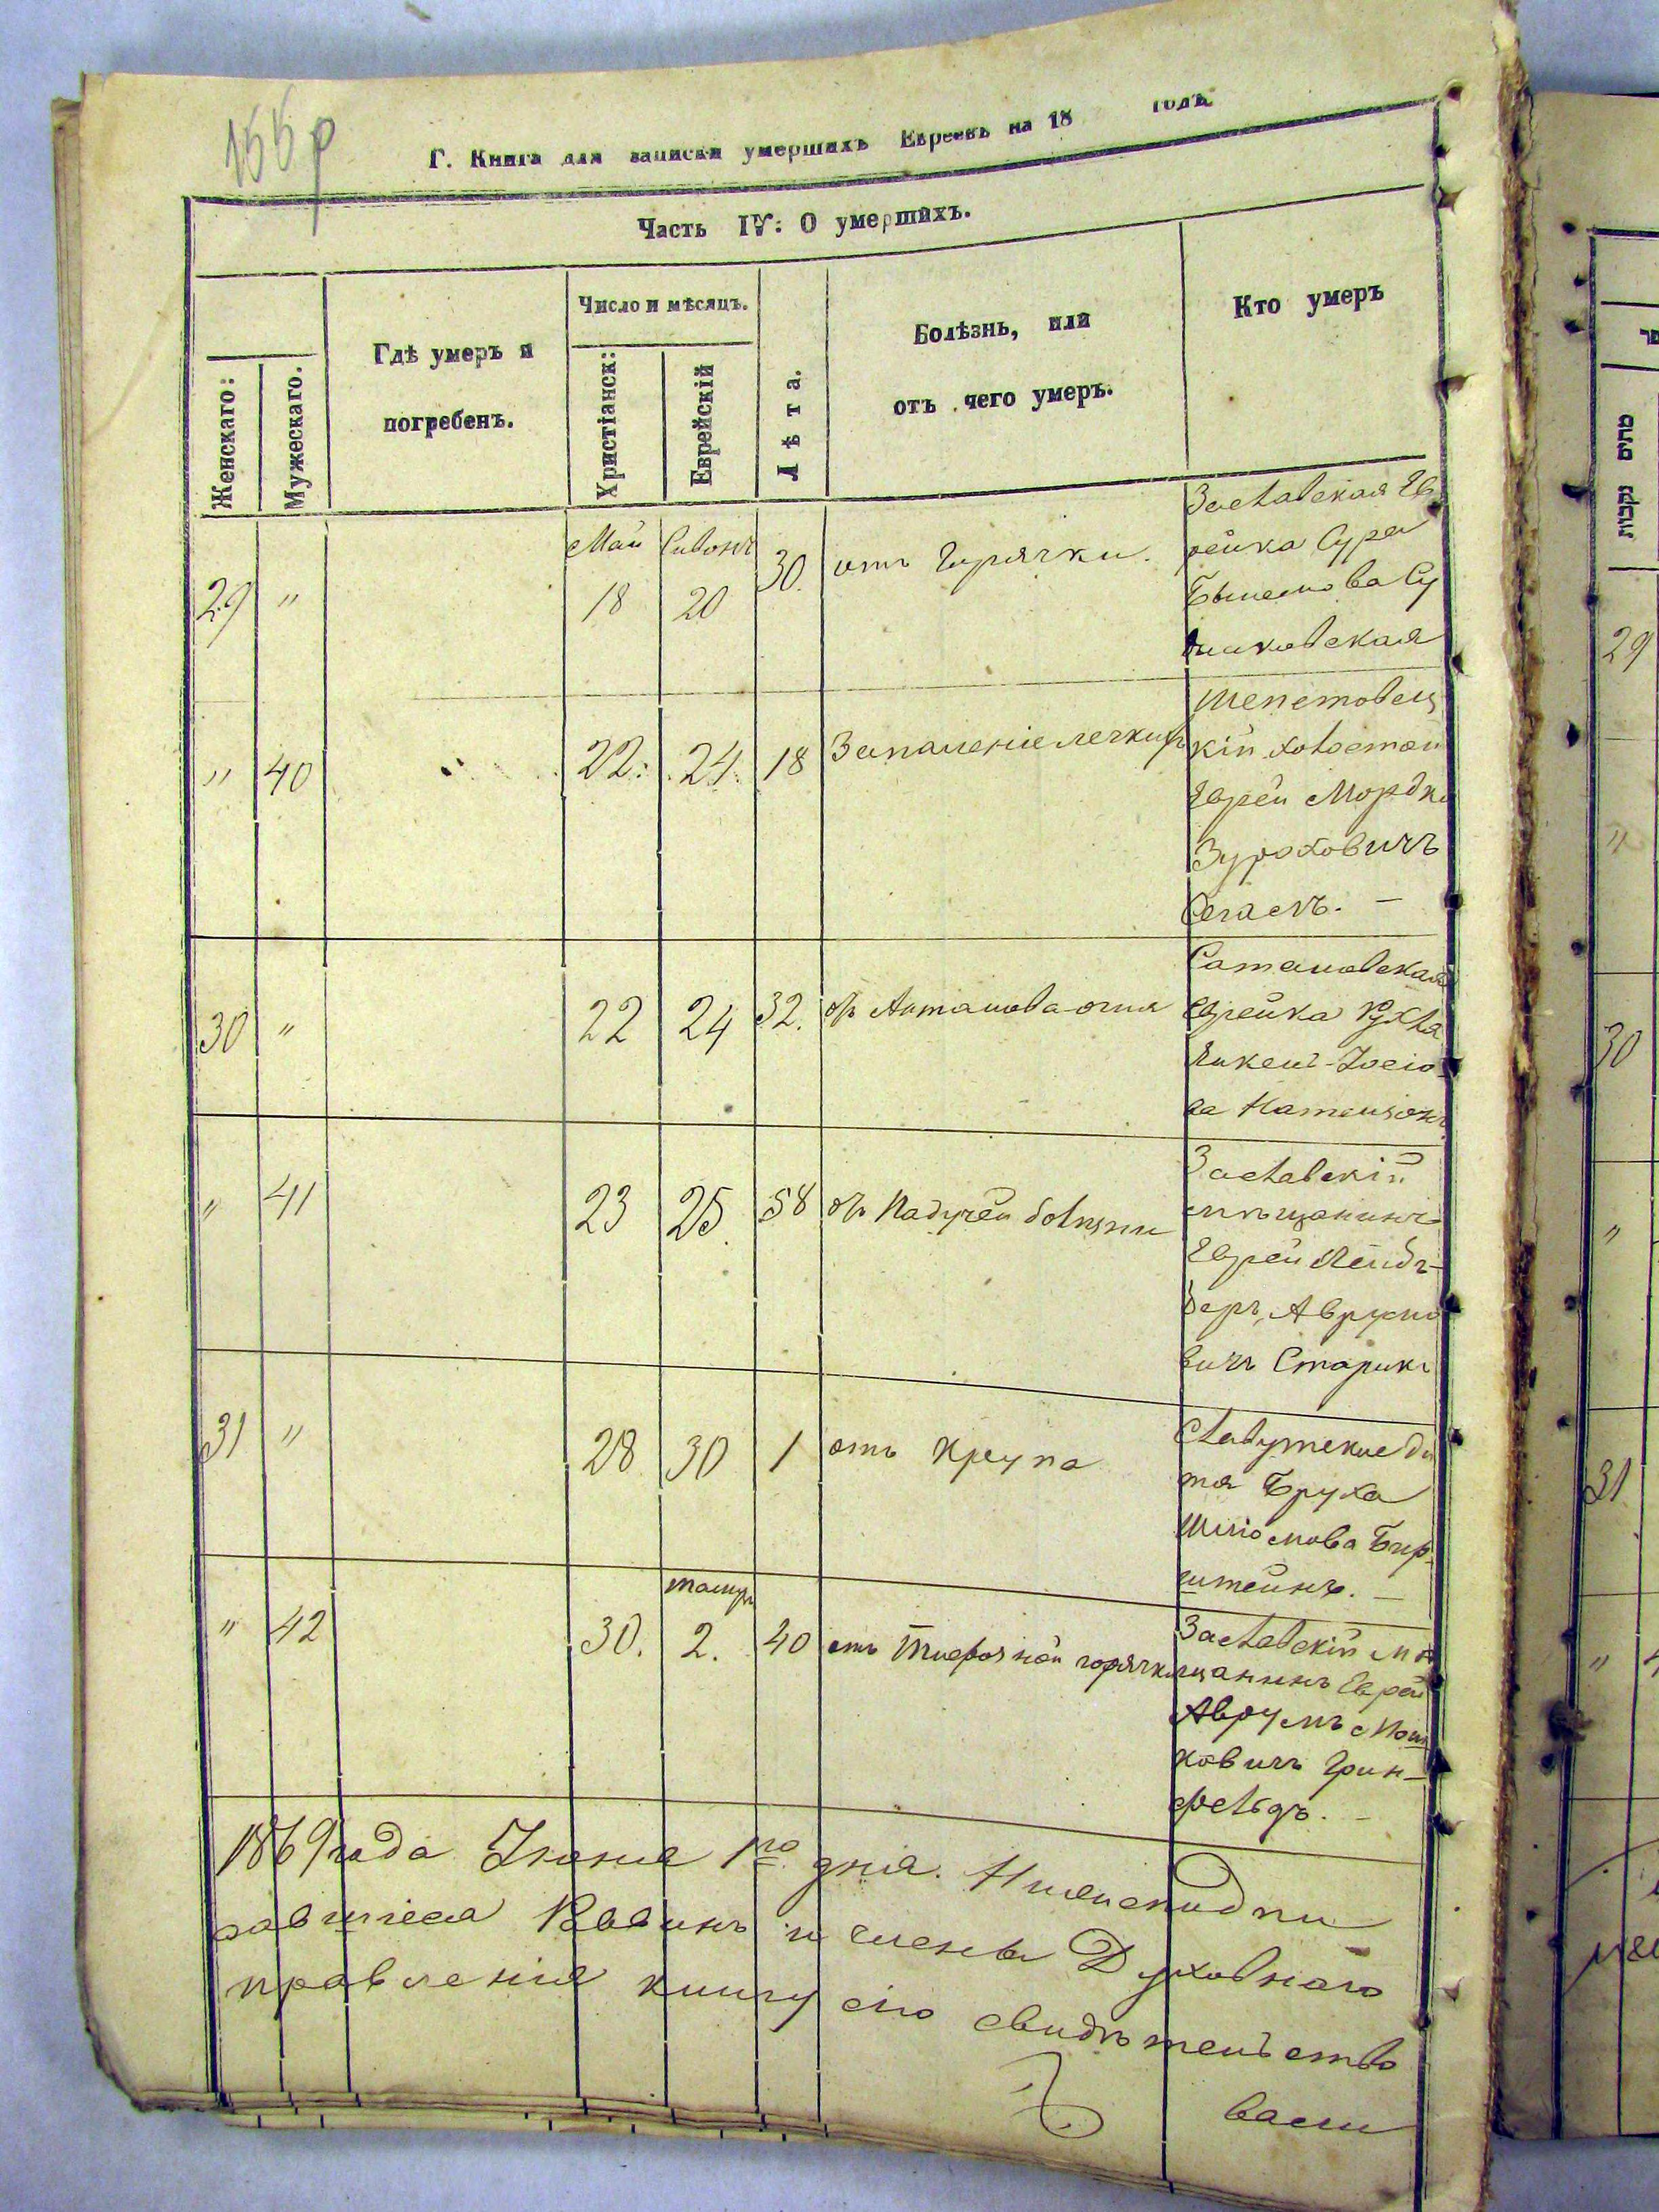 Г. Книга для записки умершихъ Евреевъ на 18 годъ
Часть IV: О умершихъ.
Женскаго:
Мужескаго.
Гдѣ умеръ и
погребенъ.
Число и мѣсяцъ.
Христіанск:
Еврейскій
Лѣта.
Болѣзнь, или
отъ чего умеръ.
Кто умеръ
Май Сивонъ
29 " 18 20 30. отъ Горячки.
Заславская Ев
рейка Сура
вская
" 40 22: 24. 18 Запаленіе легкихъ
Шепетовец
кій холостой
Еврей Мордко
Зуроховичъ
Сегалъ. —
30 " 22 24 32. отъ Антонова огня
Сатановская
Еврейка Рухля
Янкель-Іосіо
ва
" 41 23 25. 58 отъ Падучей болѣзни
Заславскій
мѣщанинъ
Еврей Лейбъ-
Беръ Аврумо
вичъ Старикъ
31 " 28 30 1 отъ Крупа
Славутское ди
тя Бруха
Шліомова Бир
штейнъ. —
тамузъ
" 42 30. 2. 40 отъ Тифозной горячки
Заславскій мѣ
щанинъ Еврей
Аврумъ Мош
ковичъ Грин-
фельдъ. —
1869 года Іюня 1го дня. Нижеподпи
савшіеся Раввинъ и члены Духовнаго
правленія книгу сію свидѣтельство
вали
מתים
נקבות
29
"
30
"
31
"